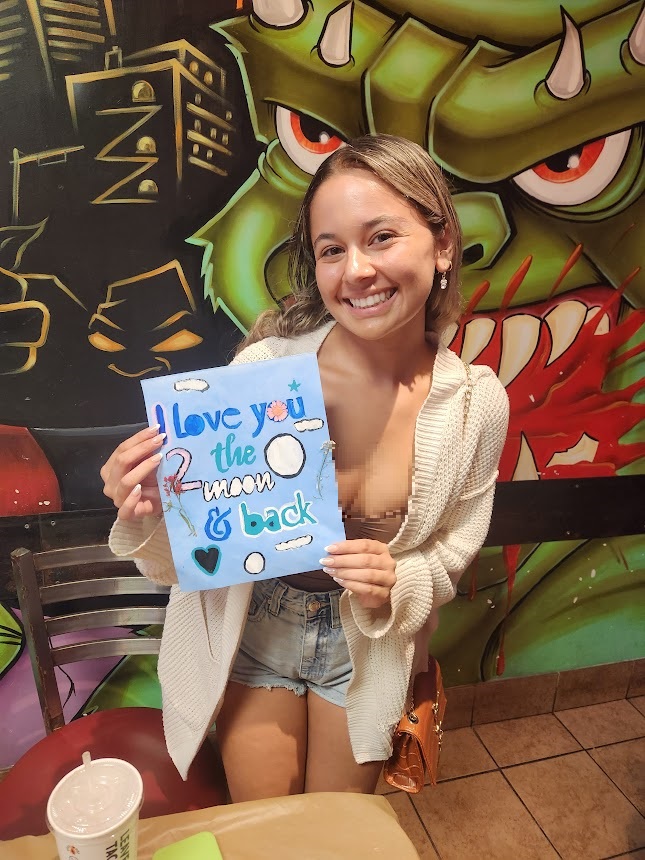 I Love you
the
2 moon
& back